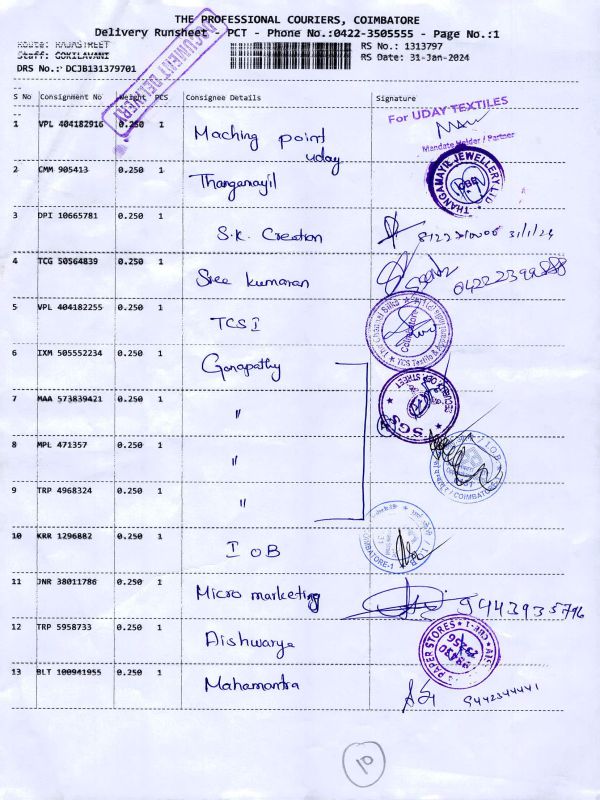 THE PROFESSIONAL COURIERS, COIMBATORE
Delivery Runsheet - PCT - Phone No.:0422-3505555 - Page No.:1
Route: RAJASTREET
RS No.: 1313797
Staff: GOKILAVANI
RS Date: 31-Jan-2024
DRS No.: DCJB131379701
DOCUMENT DELIVERY
S No Consignment No Weight PCS Consignee Details Signature
1 VPL 404182916 0.250 1 Maching point uday
For UDAY TEXTILES
Mandate Holder / Partner
2 CMM 905413 0.250 1 Thangamayil
THANGAMAYIL JEWELLERY LTD
3 DPI 10665781 0.250 1 S.K. Creation 31/1/24
4 TCG 50564839 0.250 1 Sree kumaran
5 VPL 404182255 0.250 1 TCS I
TCS Textile
Coimbatore
6 IXM 505552234 0.250 1 Ganapathy
7 MAA 573839421 0.250 1 "
SGS
8 MPL 471357 0.250 1 "
COIMBATORE
9 TRP 4968324 0.250 1 "
10 KRR 1296882 0.250 1 I O B
COIMBATORE-1
11 JNR 38011786 0.250 1 Micro marketing 9443935716
12 TRP 5958733 0.250 1 Aishwarya
PAPER STORES
13 BLT 100941955 0.250 1 Mahamantra 9442344441
10